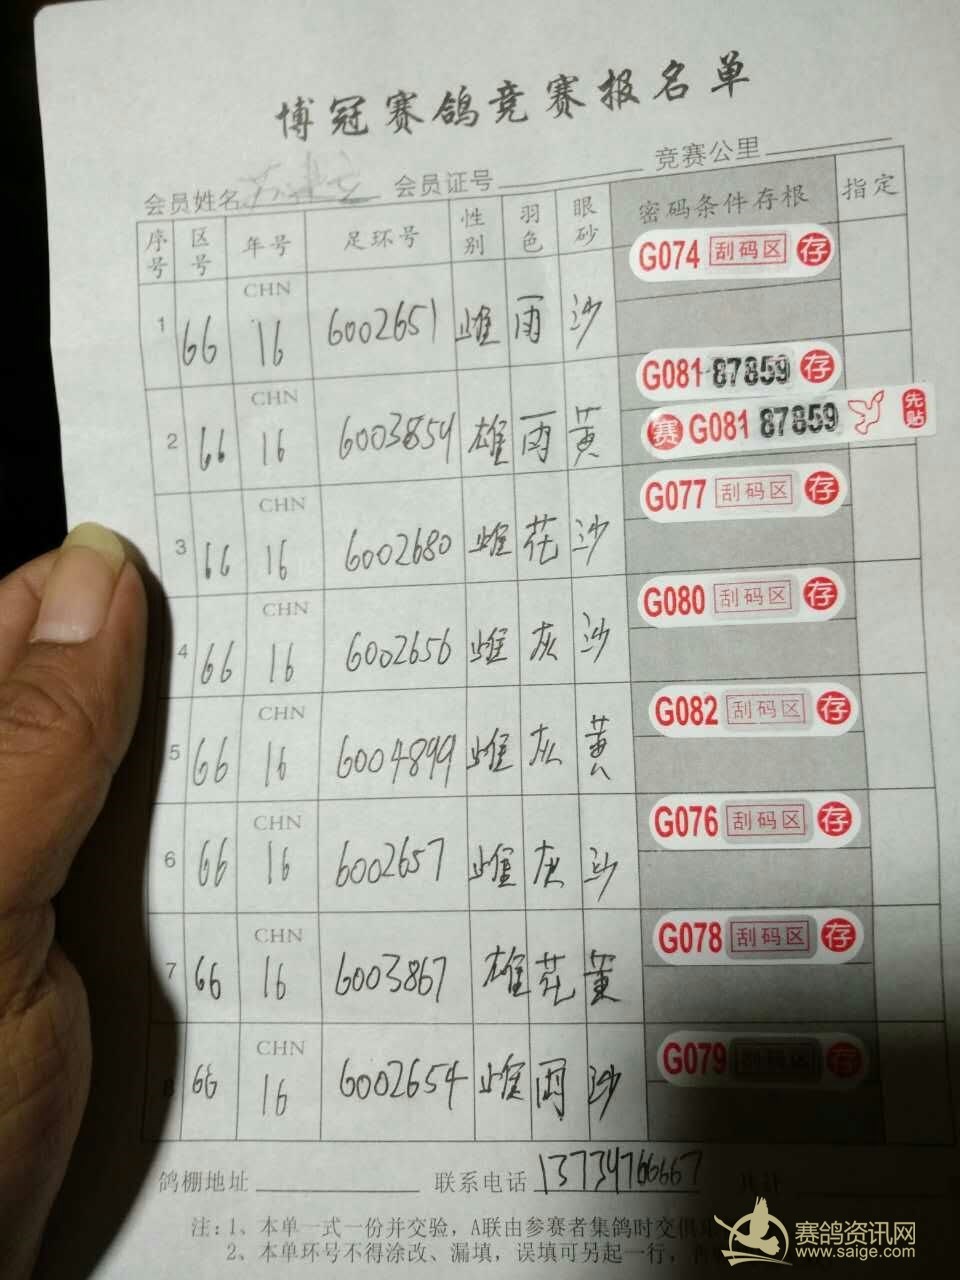 博冠赛鸽竞赛报名单
会员姓名 会员证号 竞赛公里
序号 区号 年号 足环号 性别 羽色 眼砂 密码条件存根 指定
G074 刮码区 存
1 66 CHN 16 6002651 雌 雨 沙
G081 87859 存
2 66 CHN 16 6003854 雄 雨 黄 赛 G081 87859 先贴
G077 刮码区 存
3 66 CHN 16 6002680 雌 花 沙
G080 刮码区 存
4 66 CHN 16 6002656 雌 灰 沙
G082 刮码区 存
5 66 CHN 16 6004899 雌 灰 黄
G076 刮码区 存
6 66 CHN 16 6002657 雌 灰 沙
G078 刮码区 存
7 66 CHN 16 6003867 雄 花 黄
G079 刮码区 存
8 66 CHN 16 6002654 雌 雨 沙
鸽棚地址 联系电话 13734766667 共计
注:1、本单一式一份并交验,A联由参赛者集鸽时交俱
2、本单环号不得涂改、漏填,误填可另起一行,
赛鸽资讯网
www.saige.com